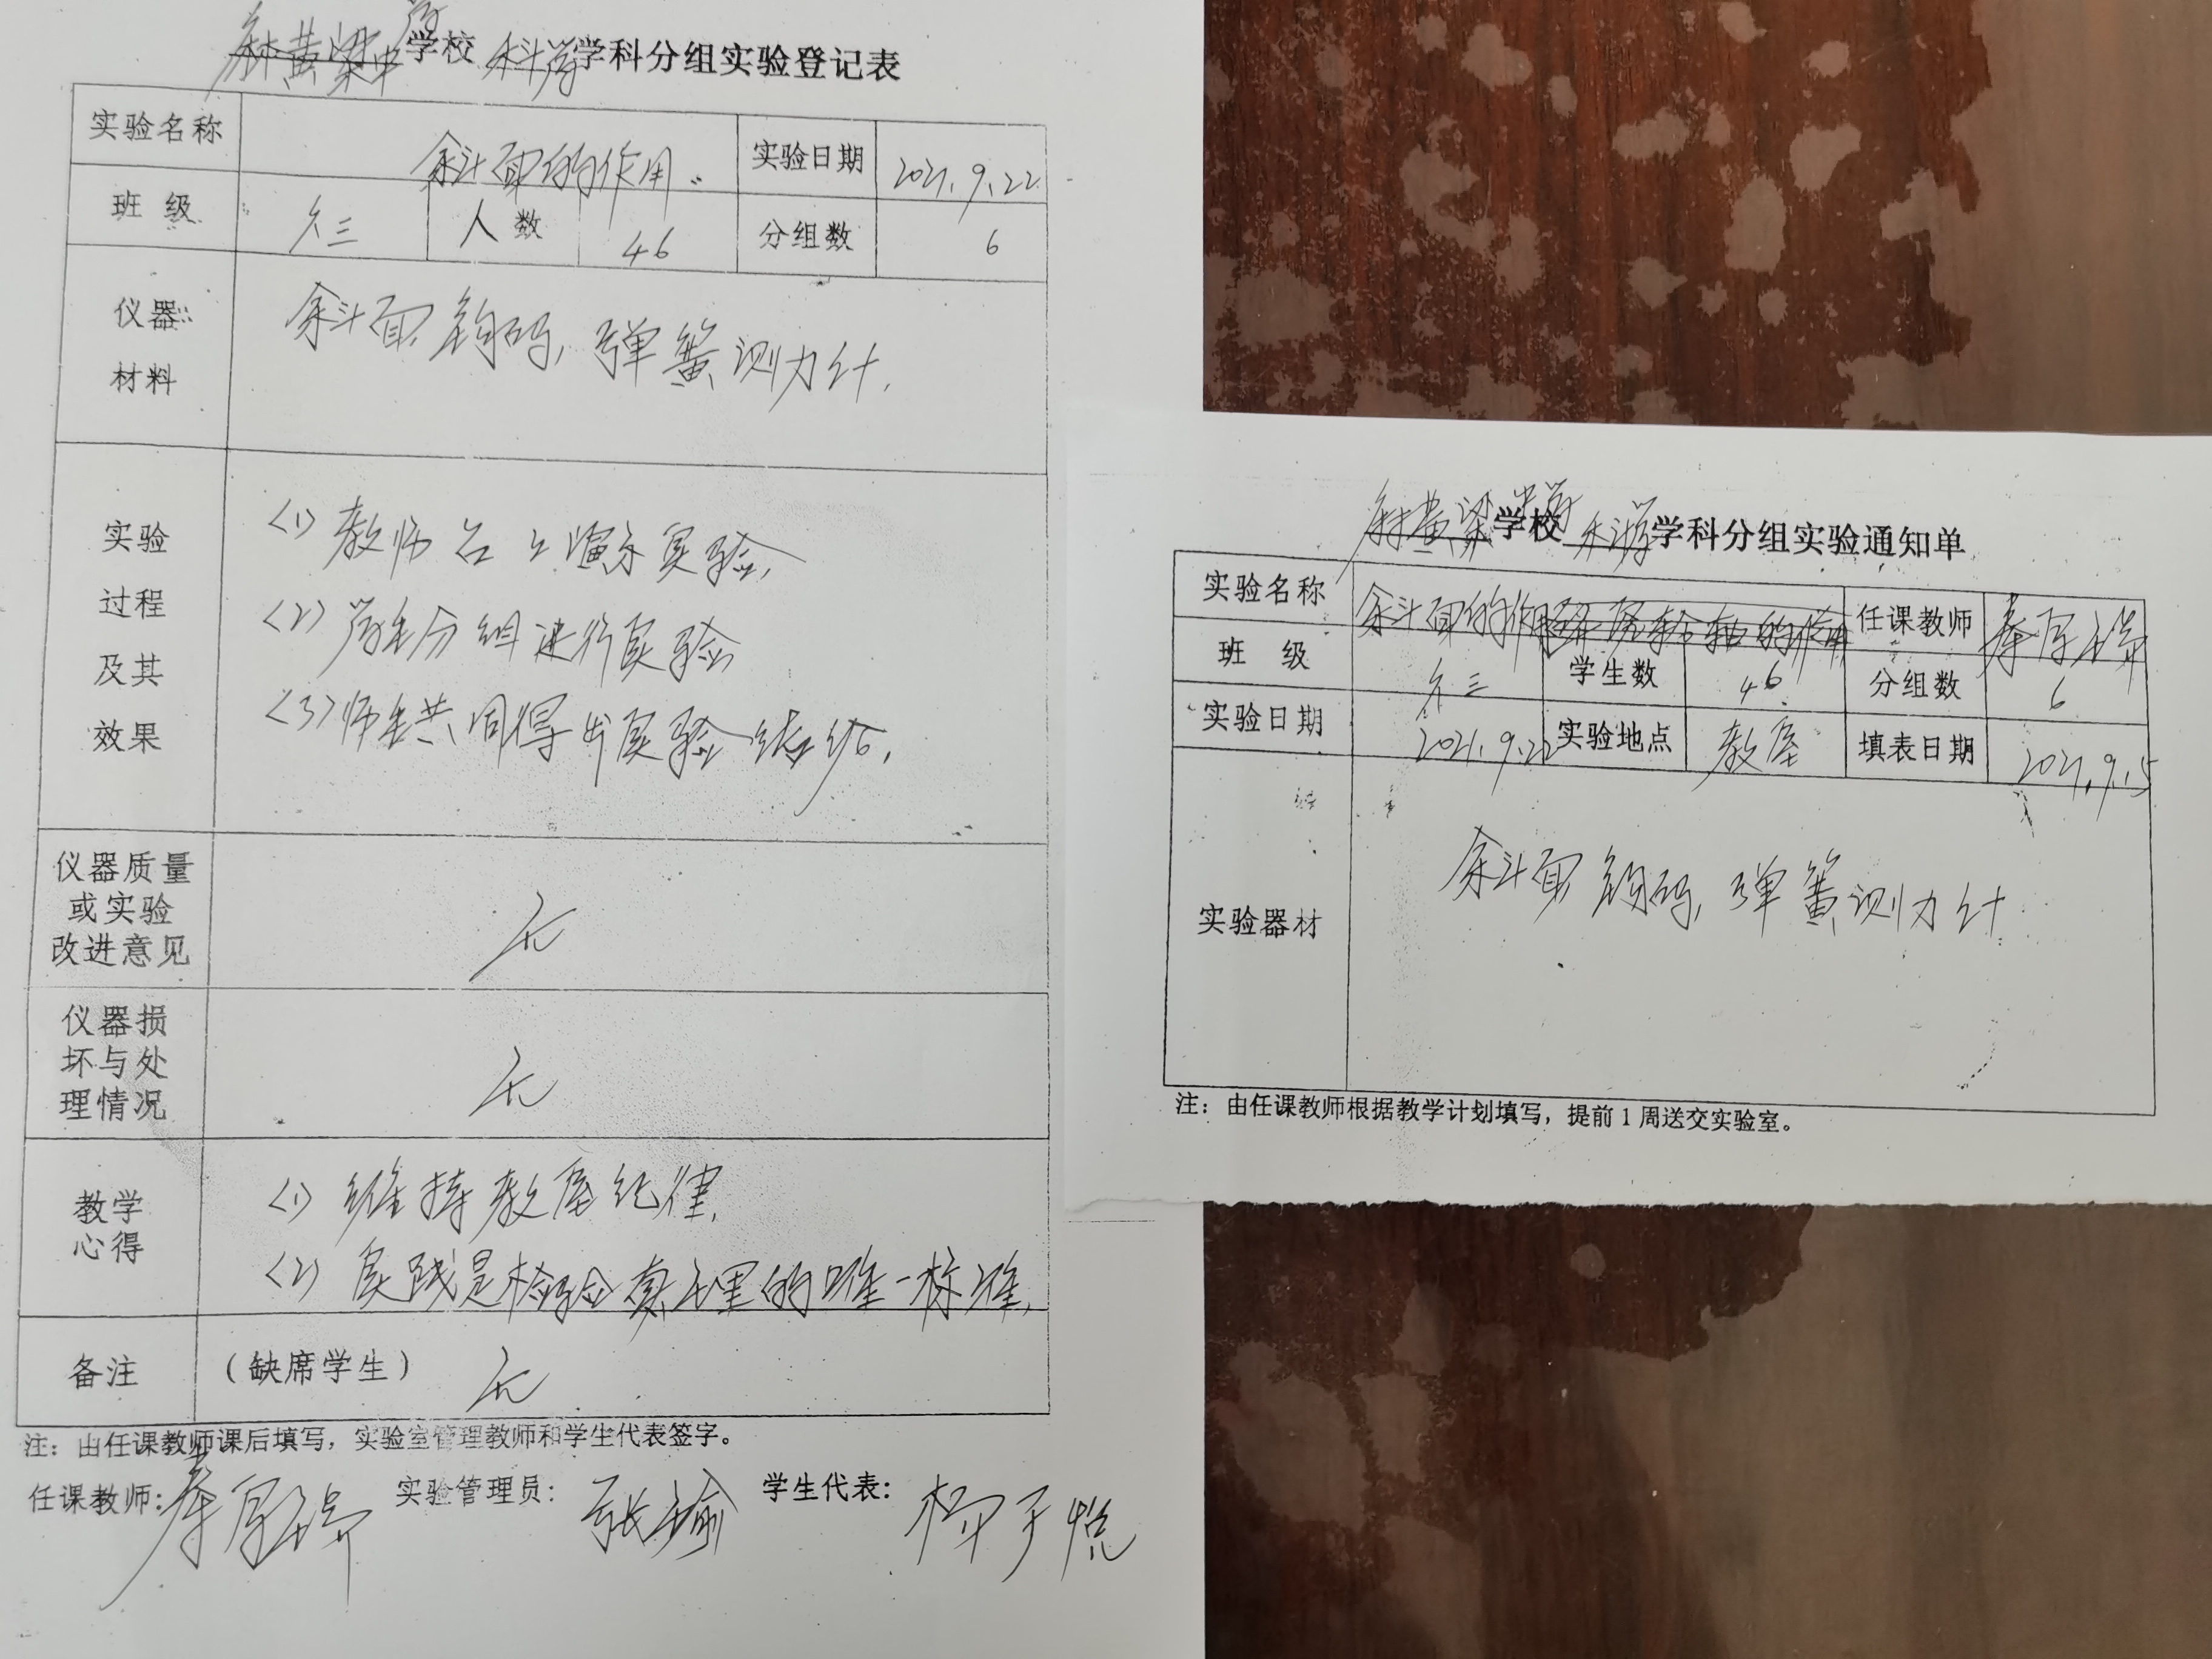 林黄梁中学学校 科学学科分组实验登记表
实验名称 斜面的作用. 实验日期 2021.9.22
班级 六三 人数 46 分组数 6
仪器
材料
斜面,钩码,弹簧测力计.
实验
过程
及其
效果
<1>教师台上演示实验,
<2>学生分组进行实验
<3>师生共同得出实验结论.
仪器质量
或实验
改进意见
无
仪器损
坏与处
理情况
无
教学
心得
<1>维持教室纪律,
<2>实践是检验真理的唯一标准.
备注 (缺席学生) 无
注：由任课教师课后填写，实验室管理教师和学生代表签字。
任课教师: 秦厚 实验管理员: 张瑜 学生代表: 于悦
林黄梁中学学校 科学学科分组实验通知单
实验名称 斜面的作用 轮轴的作用 任课教师 秦厚
班 级 六三 学生数 46 分组数 6
实验日期 2021.9.22 实验地点 教室 填表日期 2021.9.15
实验器材
斜面,钩码,弹簧测力计
注：由任课教师根据教学计划填写，提前1周送交实验室。